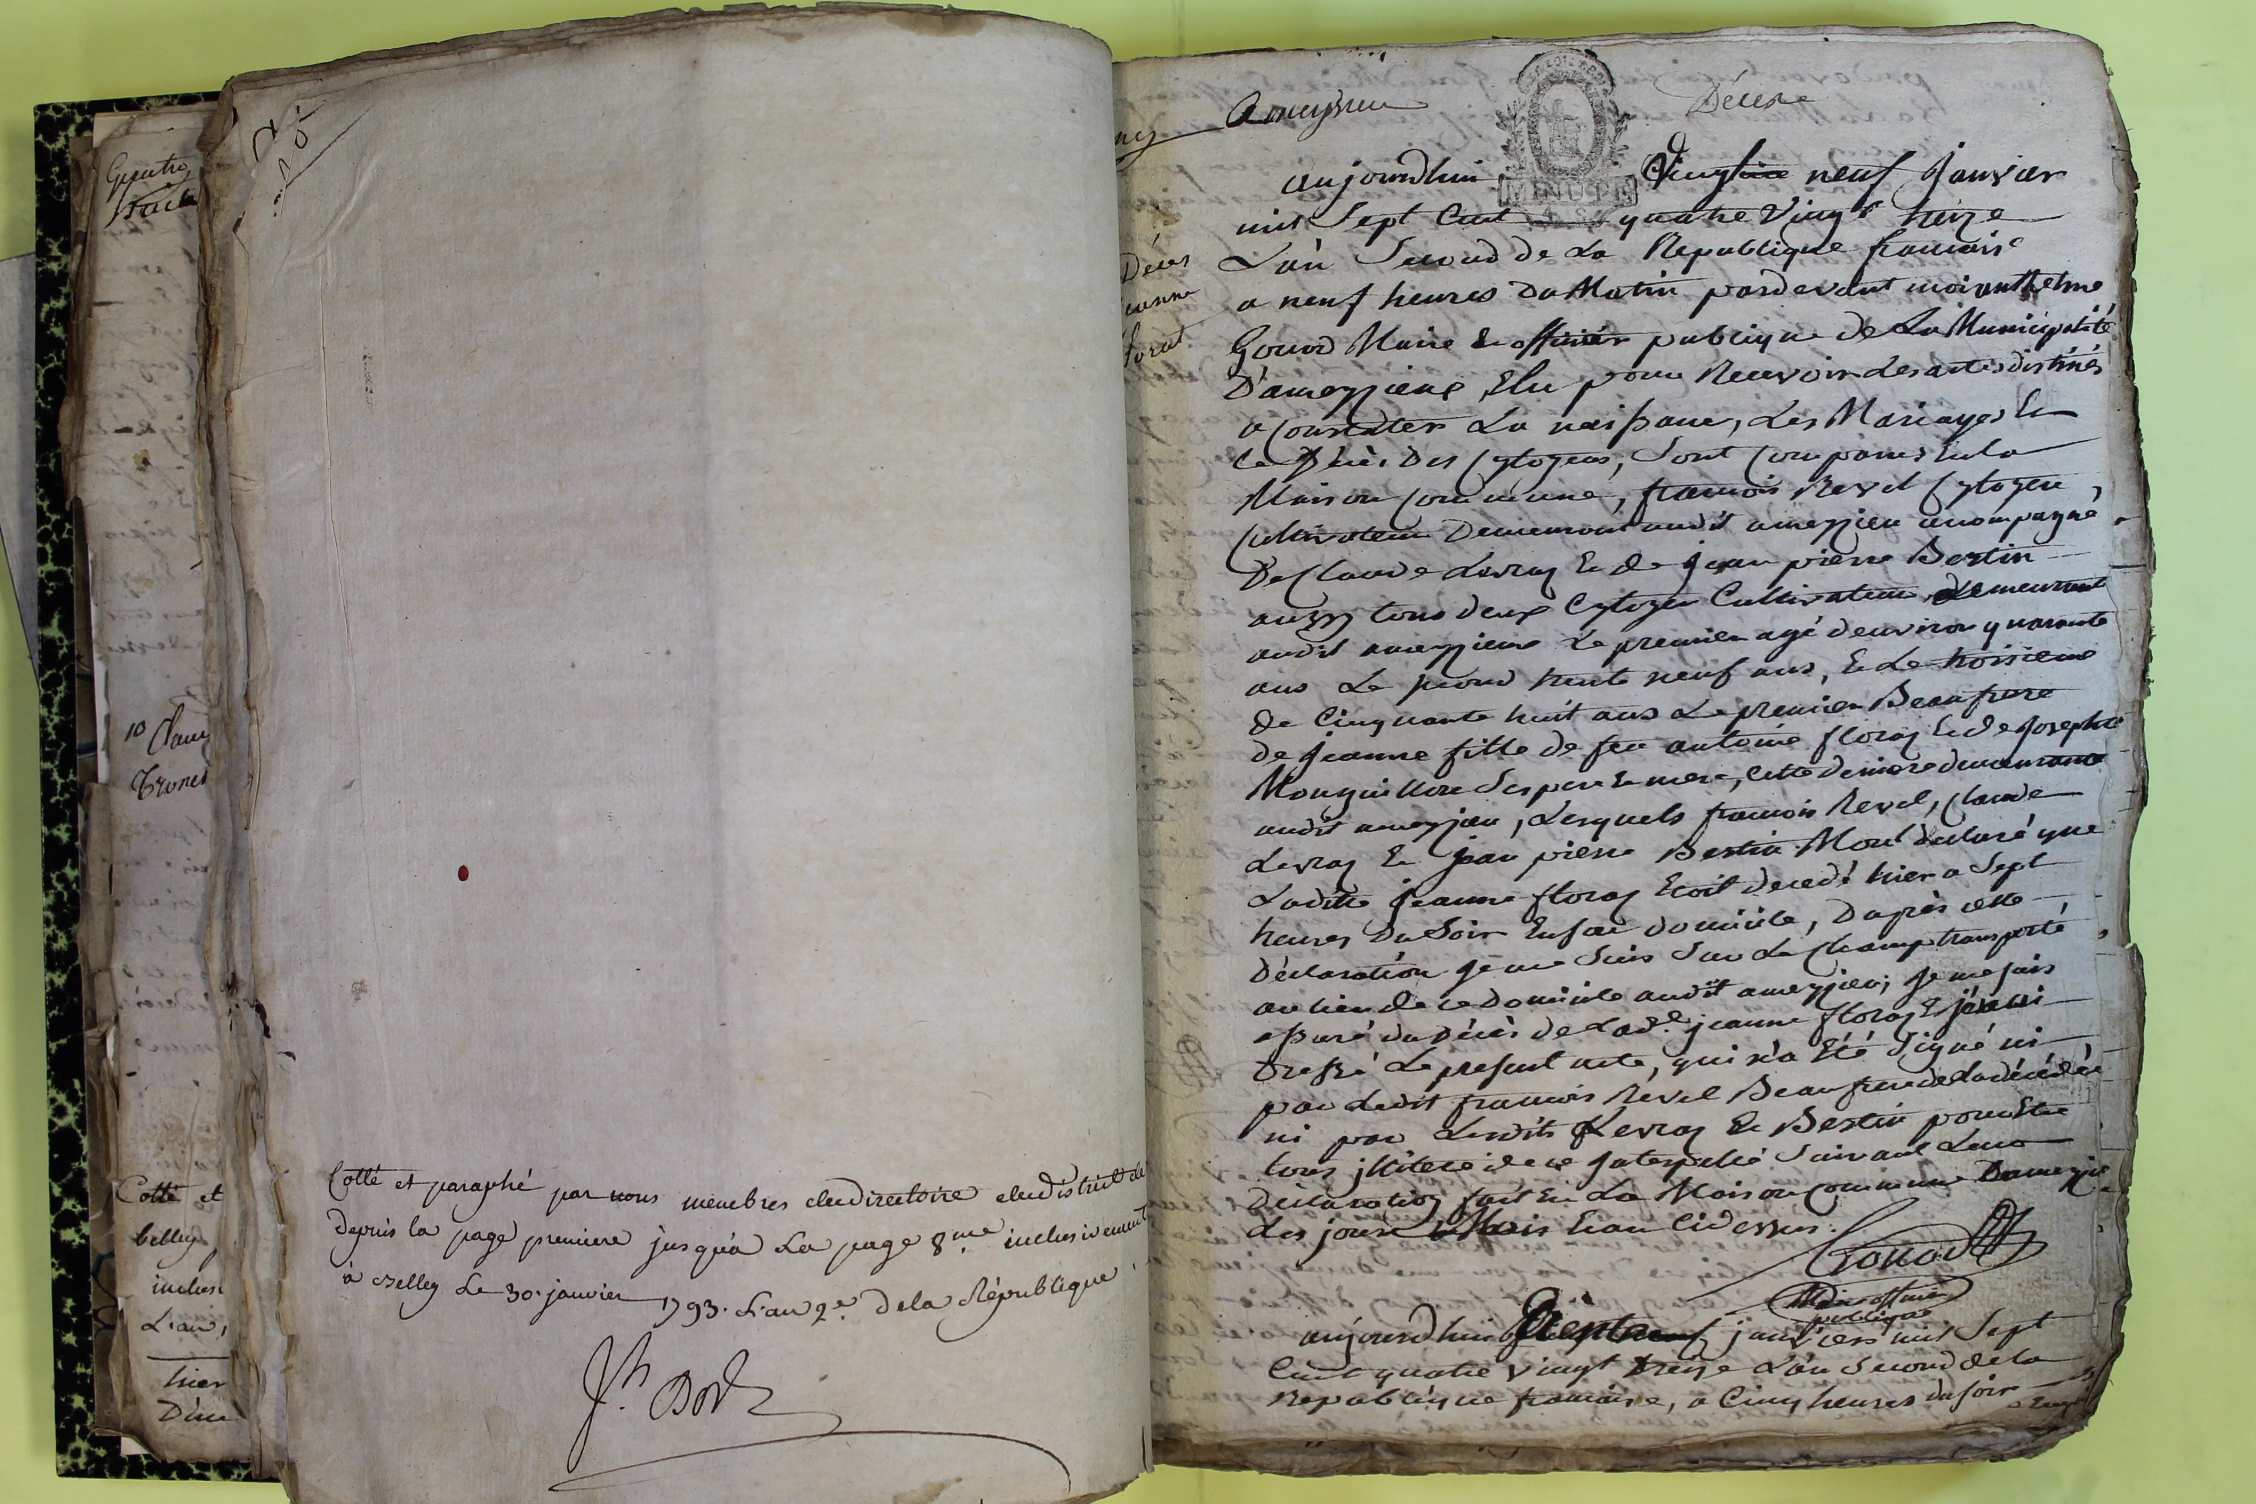 Cotté et
belley
inclus
L'an,
hier
10
Cotté et paraphé par nous membres du directoire du district de
depuis la page premiere jusqu'a La page 8.me inclusivement
à Belley Le 30. janvier 1793. L'an 2.e de la République
Ameysieu
Décès
MINUTE
Décès
jeanne
floret
aujourdhui Vingt neuf Janvier
mil Sept Cent quatre Vingt treize
L'an Second de La Republique francaise
a neuf heures du Matin pardevant moi anthelme
Gonod Maire & officier publique de La Municipalité
D'ameyzieux, Elu pour Recevoir les actes distinés
a Constater La naissance, Les Mariages Et
Le Décès Des Cytoyens, Sont Comparus En la
Maison Commune, francois Revel Cytoyen
Cultivateur Demeurant audit ameyzieu acompagné
De Claude Levraz Et de Jean pierre Bertin
aussy tous deux Cytoyen Cultivateur demeurant
audit ameyzieux Le premier agé d'environ quarante
ans Le second trente neuf ans, & Le troisieme
de Cinquante huit ans Le premier Beaufrere
de Jeanne fille de feu antoine floraz Et de Josephte
ses pere Et mere, Cette derniere demeurante
audit ameyzieu, Lesquels francois Revel, Claude
Levraz Et Jean pierre Bertin Mont declaré que
Ladite Jeanne floraz Etoit decedé hier a Sept
heures Du Soir En son domicile, D'après cette
Déclaration Je me Suis Sur Le Champ transporté
au lieu de ce Domicile audit ameyzieu, Je me suis
assuré du Décès de Lad.e jeanne floraz & j'en ai
Dressé Le present acte, qui n'a Eté Signé ni
par Ledit francois Revel Beaufrere de La décédée
ni par Lesdits Levraz Et Bertin pour Etre
tous illiteré de ce Interpellé Suivant Leur
Déclaration fait En La Maison Commune Dameyzieu
Les jour Mois Et an Cidessus.
Gonod
Maire officier
publique
aujourdhui janvier mil Sept
Cent quatre Vingt treize L'an Second de la
Republique francaise, a Cinq heures du soir